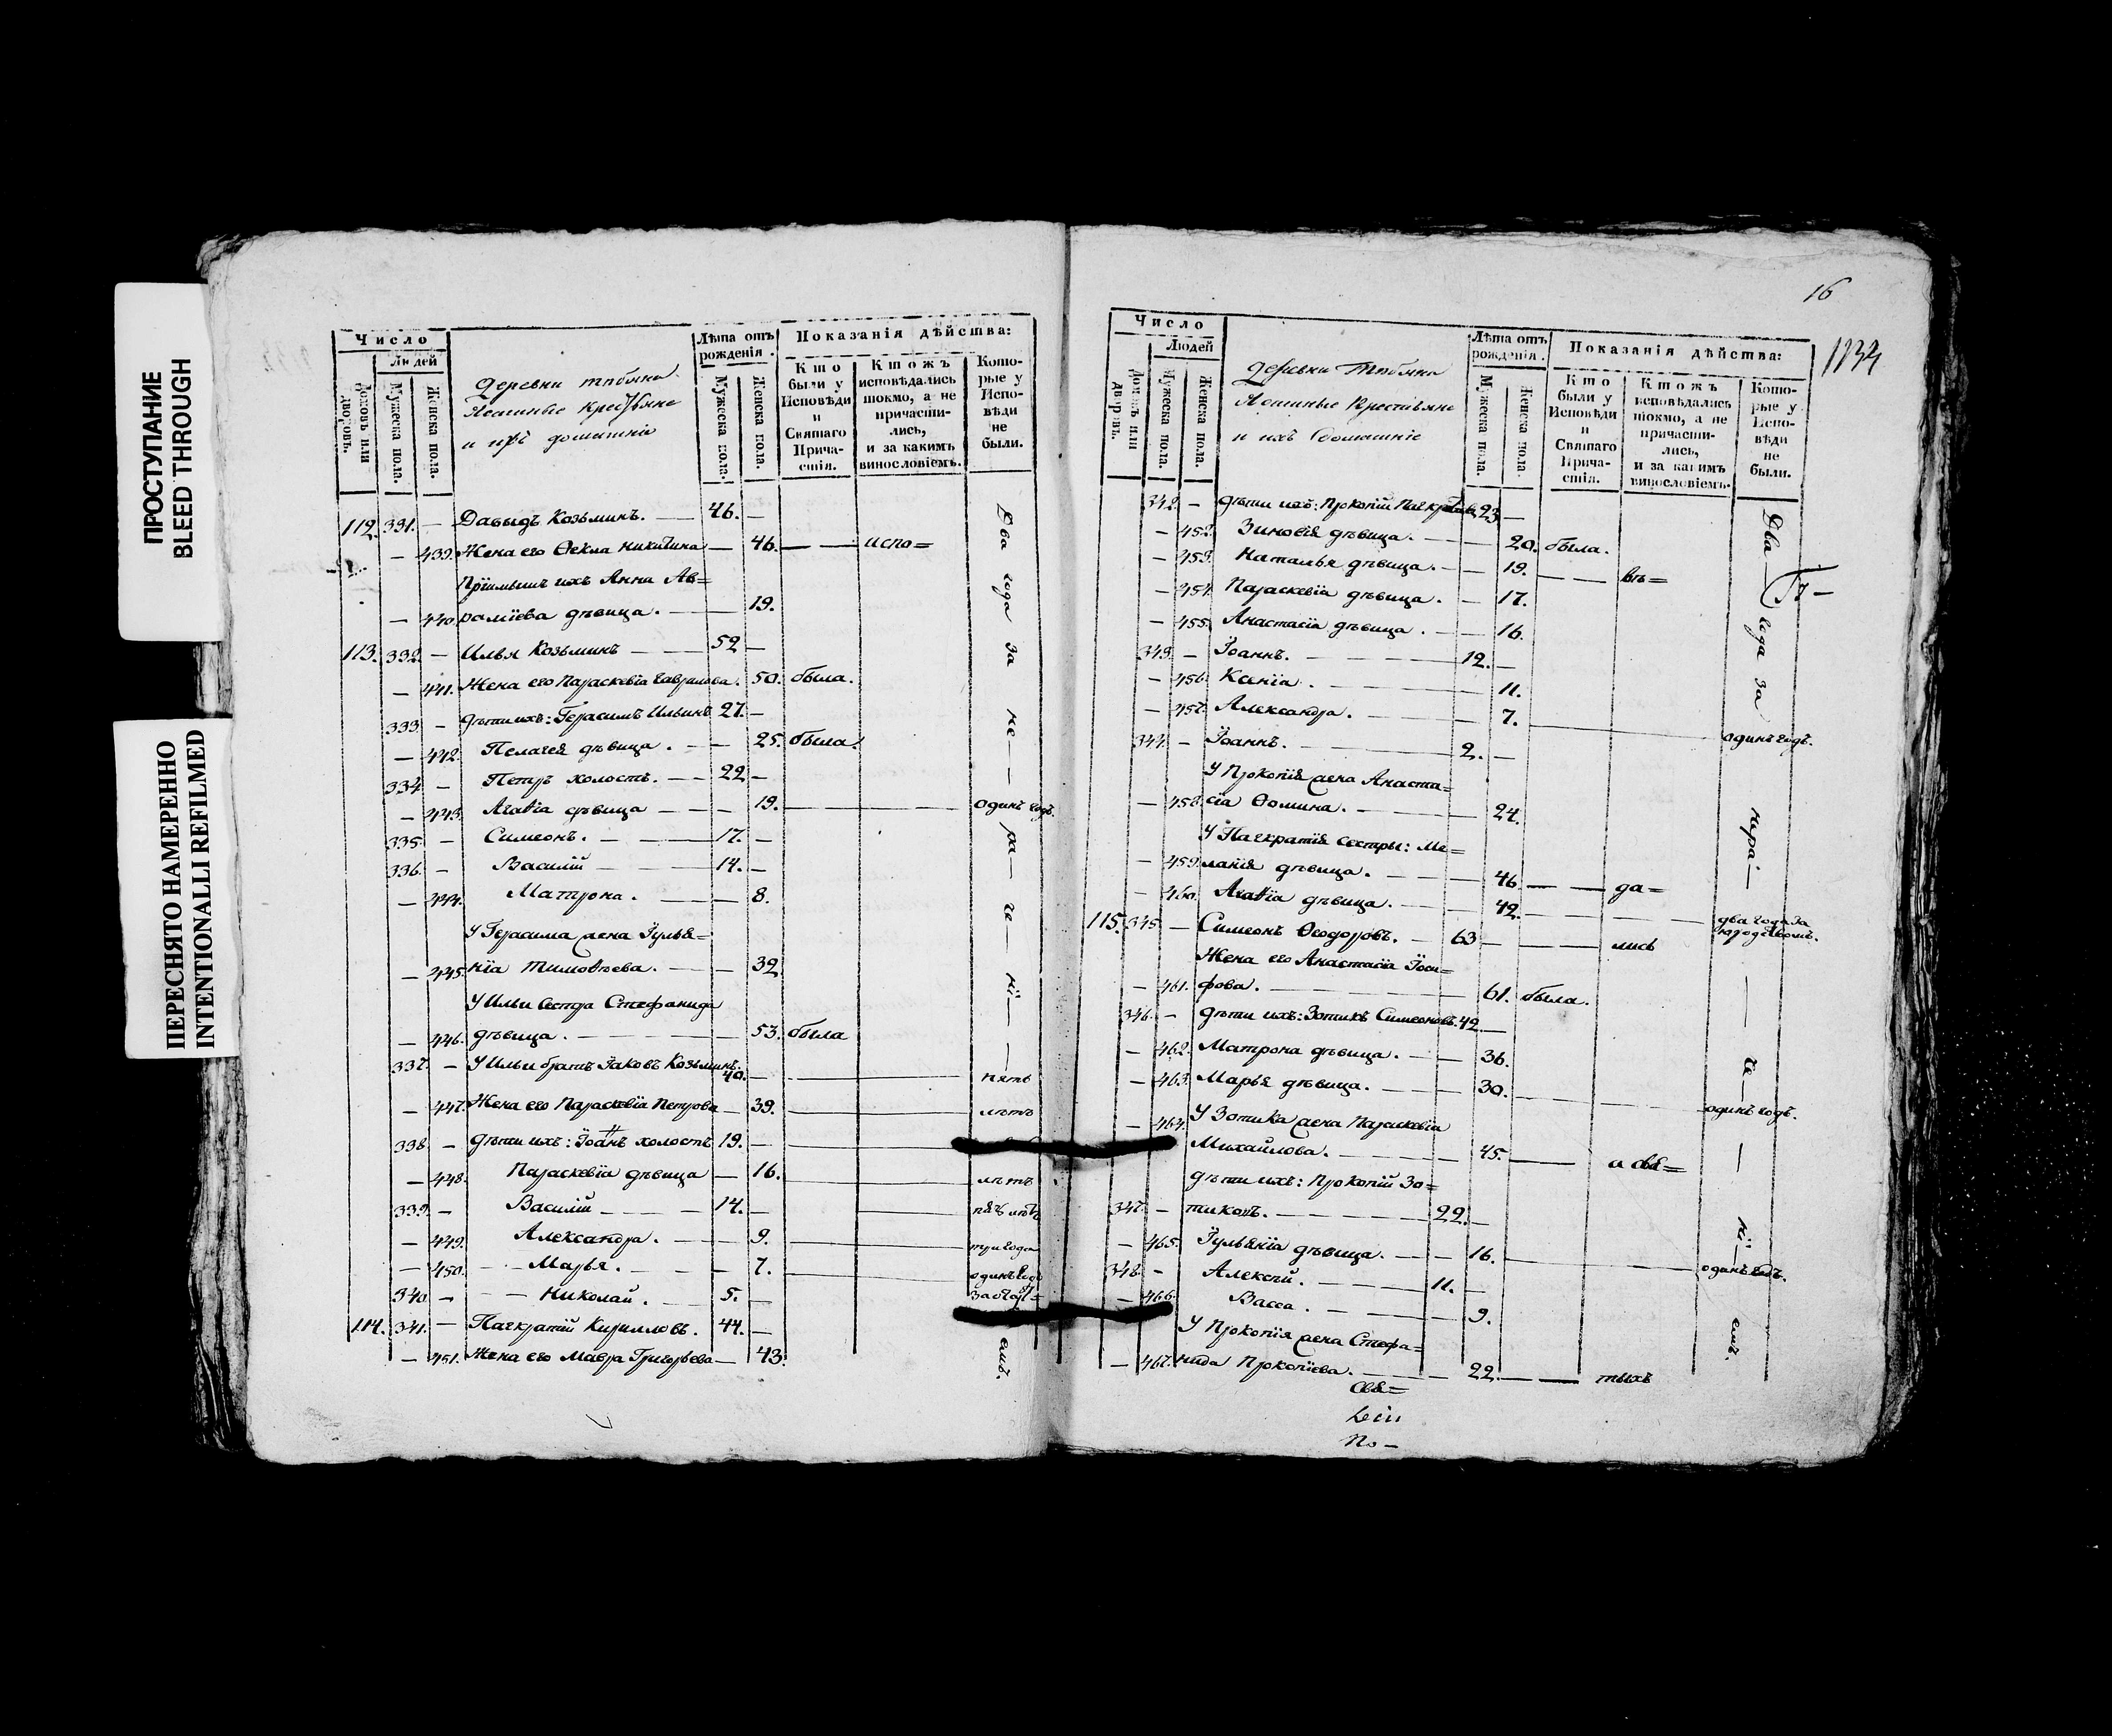 ПРОСТУПАНИЕ
BLEED THROUGH
ПЕРЕСНЯТО НАМЕРЕННО
INTENTIONALLI REFILMED
Число
Людей
домовъ или дворовъ.
Мужеска пола.
Женска пола.
Деревни
Ясашные крестьяне
и ихъ домашніе
Лѣта отъ рожденія.
Мужеска пола.
Женска пола.
Показанія дѣйства:
Кто были у Исповѣди и Святаго Причастія.
Ктожъ исповѣдались токмо, а не причастились, и за какимъ винословіемъ.
Которые у Исповѣди не были.
112. 331. — Давыдъ Козьминъ. — 46. —
— 439. Жена его Ѳекла Никитина — 46. — — испо=
Пріимышъ ихъ Анна Ав=
— 440. рамїева дѣвица. — 19.
113. 332. — Илья Козьминъ — 52 —
— 441. Жена его Параскевїа Гаврилова. 50. была.
333. — Дѣти ихъ: Герасимъ Ильинъ 27. —
— 442. Пелагея дѣвица. — 25. была.
334. — Петръ холостъ. — 22 —
— 443. Агаѳїа дѣвица — 19. — одинъ годъ.
335. — Симеонъ. — 17. —
336. — Василій — 14. —
— 444. Матрона. — 8.
У Герасима жена Їулья=
— 445. нїа Тимоѳеева. — 32
У Ильи сестра Стефанида
— 446. дѣвица. — 53. была
337. — У Ильи братъ Їаковъ Козьминъ. 40. — пять
— 447. Жена его Параскевїа Петрова — 39. — лѣтъ
338. — Дѣти ихъ: Їоаннъ холостъ 19. —
— 448. Параскевїа дѣвица — 16. — лѣтъ
339. — Василій — 14. — пять лѣтъ
— 449. Александра. — 9. — три года
— 450. Марья. — 7. — одинъ годъ
340. — Николай. — 5. —
114. 341. — Панкратій Кирилловъ. 44. —
— 451. Жена его Мавра Григорьева — 43.
Два года за не — ра — че — нї — емъ.
16
1134
Число
Людей
домовъ или дворовъ.
Мужеска пола.
Женска пола.
Деревни
Ясашные Крестьяне
и ихъ домашніе
Лѣта отъ рожденія.
Мужеска пола.
Женска пола.
Показанія дѣйства:
Кто были у Исповѣди и Святаго Причастія.
Ктожъ исповѣдались токмо, а не причастились, и за какимъ винословіемъ.
Которые у Исповѣди не были.
342. — Дѣти ихъ: Прокопій Панкратовъ 23 —
— 452. Зиновїя дѣвица. — 20. была.
— 453. Наталья дѣвица. — 19. — вѣ=
— 454. Параскевїа дѣвица. — 17.
— 455. Анастасїа дѣвица. — 16.
343. — Їоаннъ. — 12. —
— 456. Ксенїа. — 11.
— 457. Александра. — 7. — одинъ годъ.
344. — Їоаннъ. — 2. —
У Прокопїя жена Анаста=
— 458. сїа Ѳомина. — 24.
У Панкратїя сестры: Ме=
— 459. ланїя дѣвица. — 46 — да=
— 460. Агаѳїа дѣвица. — 42. — два года за
115. 345. — Симеонъ Ѳеодоровъ. — 63 — лись
Жена его Анастасїа Їоси=
— 461. фова. — 61. была.
346. — Дѣти ихъ: Зотикъ Симеоновъ. 42 —
— 462. Матрона дѣвица. — 36.
— 463. Марья дѣвица. — 30. — одинъ годъ.
— 464. У Зотика жена Параскевїа
Михайлова. — 45. — а свя=
Дѣти ихъ: Прокопій Зо=
347. — тиковъ. — 22. —
— 465. Їульянїа дѣвица. — 16. — одинъ годъ.
348. — Алексій. — 11. —
— 466. Васса. — 9.
У Прокопїя жена Стефа=
— 467. нида Прокопїева. — 22. — тыхъ
Два — года за нера — че — нї — емъ.
свя=
По —